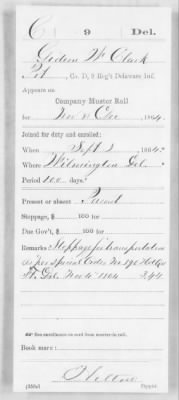 C 9 Del.
Gideon W Clark
Pvt, Co. D, 9 Reg't Delaware Inf.
Appears on
Company Muster Roll
for Nov & Dec, 1864.
Joined for duty and enrolled:
When Sept 2, 1864.
Where Wilmington Del.
Period 100 days.
Present or absent Present
Stoppage, $ 100 for
Due Gov't, $ 100 for
Remarks: Stoppage for transportation
as per Special Order No 390 
Ft. Del. Nov 4 1864 2.44
* See enrollment on card from muster-in roll.
Book mark:
(358c) Copyist.